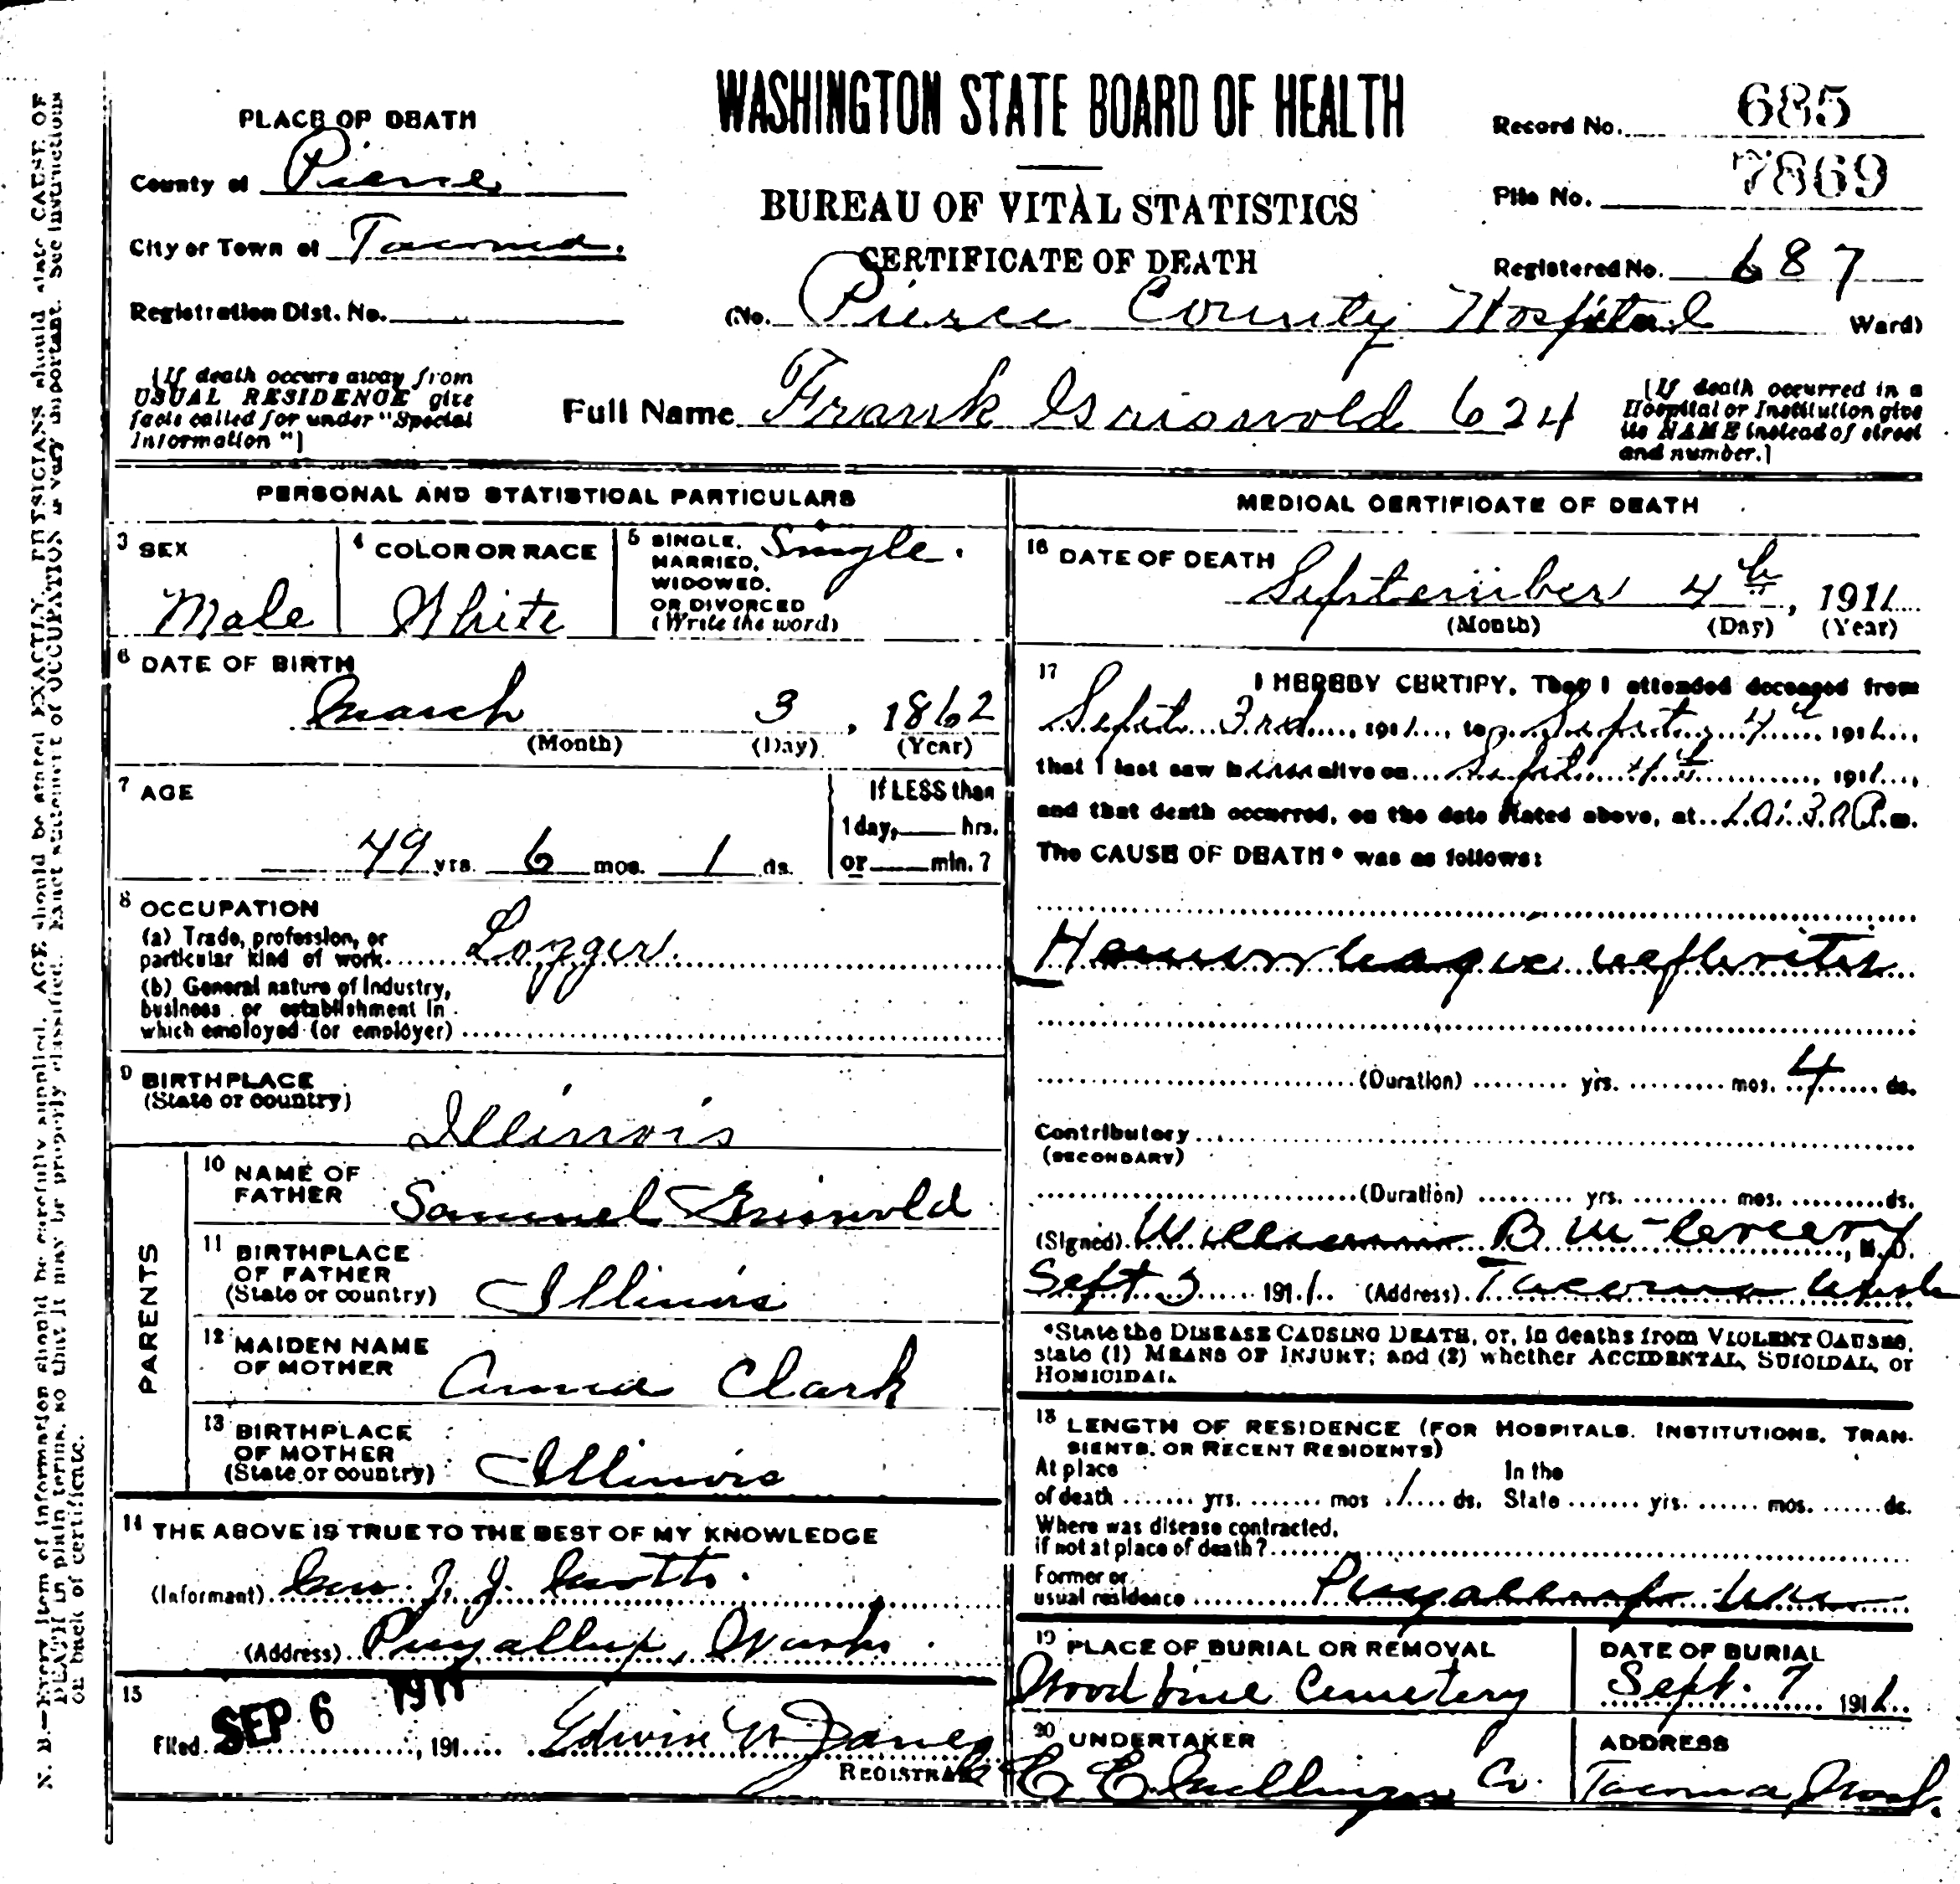 WASHINGTON STATE BOARD OF HEALTH
BUREAU OF VITAL STATISTICS
CERTIFICATE OF DEATH
PLACE OF DEATH
County of Pierce
City or Town of Tacoma.
Registration Dist. No.
Record No. 685
File No. 7869
Registered No. 687
(No. Pierce County Hospital Ward)
[If death occurs away from
USUAL RESIDENCE give
facts called for under "Special
Information"]
Full Name Frank Griswold 624
[If death occurred in a
Hospital or Institution give
its NAME instead of street
and number.]
PERSONAL AND STATISTICAL PARTICULARS
3 SEX
Male
4 COLOR OR RACE
White
5 SINGLE, MARRIED, WIDOWED, OR DIVORCED (Write the word)
Single.
6 DATE OF BIRTH
March 3, 1862
(Month) (Day) (Year)
7 AGE
49 yrs. 6 mos. 1 ds.
If LESS than
1 day, hrs.
or min. ?
8 OCCUPATION
(a) Trade, profession, or
particular kind of work Logger.
(b) General nature of Industry,
business or establishment in
which employed (or employer)
9 BIRTHPLACE
(State or country)
Illinois
PARENTS
10 NAME OF
FATHER Samuel Griswold
11 BIRTHPLACE
OF FATHER
(State or country) Illinois
12 MAIDEN NAME
OF MOTHER Anna Clark
13 BIRTHPLACE
OF MOTHER
(State or country) Illinois
14 THE ABOVE IS TRUE TO THE BEST OF MY KNOWLEDGE
(Informant) J. J.
(Address) Puyallup, Wash.
15
Filed SEP 6 1911, 191
Edwin W Janes
REGISTRAR
MEDICAL CERTIFICATE OF DEATH
16 DATE OF DEATH
September 4th, 1911
(Month) (Day) (Year)
17 I HEREBY CERTIFY, That I attended deceased from
Sept. 3rd, 1911, to Sept. 4th, 1911,
that I last saw him alive on Sept. 4th, 1911,
and that death occurred, on the date stated above, at 10:30 P.m.
The CAUSE OF DEATH* was as follows:
Hemorrhagic nephritis
(Duration) yrs. mos. 4 ds.
Contributory
(SECONDARY)
(Duration) yrs. mos. ds.
(Signed) William B McCreery, M.D.
Sept 5 1911 (Address) Tacoma Wash
*State the DISEASE CAUSING DEATH, or, in deaths from VIOLENT CAUSES,
state (1) MEANS OF INJURY; and (2) whether ACCIDENTAL, SUICIDAL, or
HOMICIDAL.
18 LENGTH OF RESIDENCE (FOR HOSPITALS, INSTITUTIONS, TRAN-
SIENTS, OR RECENT RESIDENTS)
At place
of death yrs. mos 1 ds.
In the
State yrs. mos. ds.
Where was disease contracted,
if not at place of death?
Former or
usual residence Puyallup
19 PLACE OF BURIAL OR REMOVAL
Woodbine Cemetery
DATE OF BURIAL
Sept. 7 1911
20 UNDERTAKER
C. C. Mellinger Co.
ADDRESS
Tacoma, Wash.
N. B.—Every item of information should be carefully supplied. AGE should be stated EXACTLY. PHYSICIANS should state CAUSE OF
DEATH in plain terms, so that it may be properly classified. Exact statement of OCCUPATION is very important. See instructions
on back of certificate.